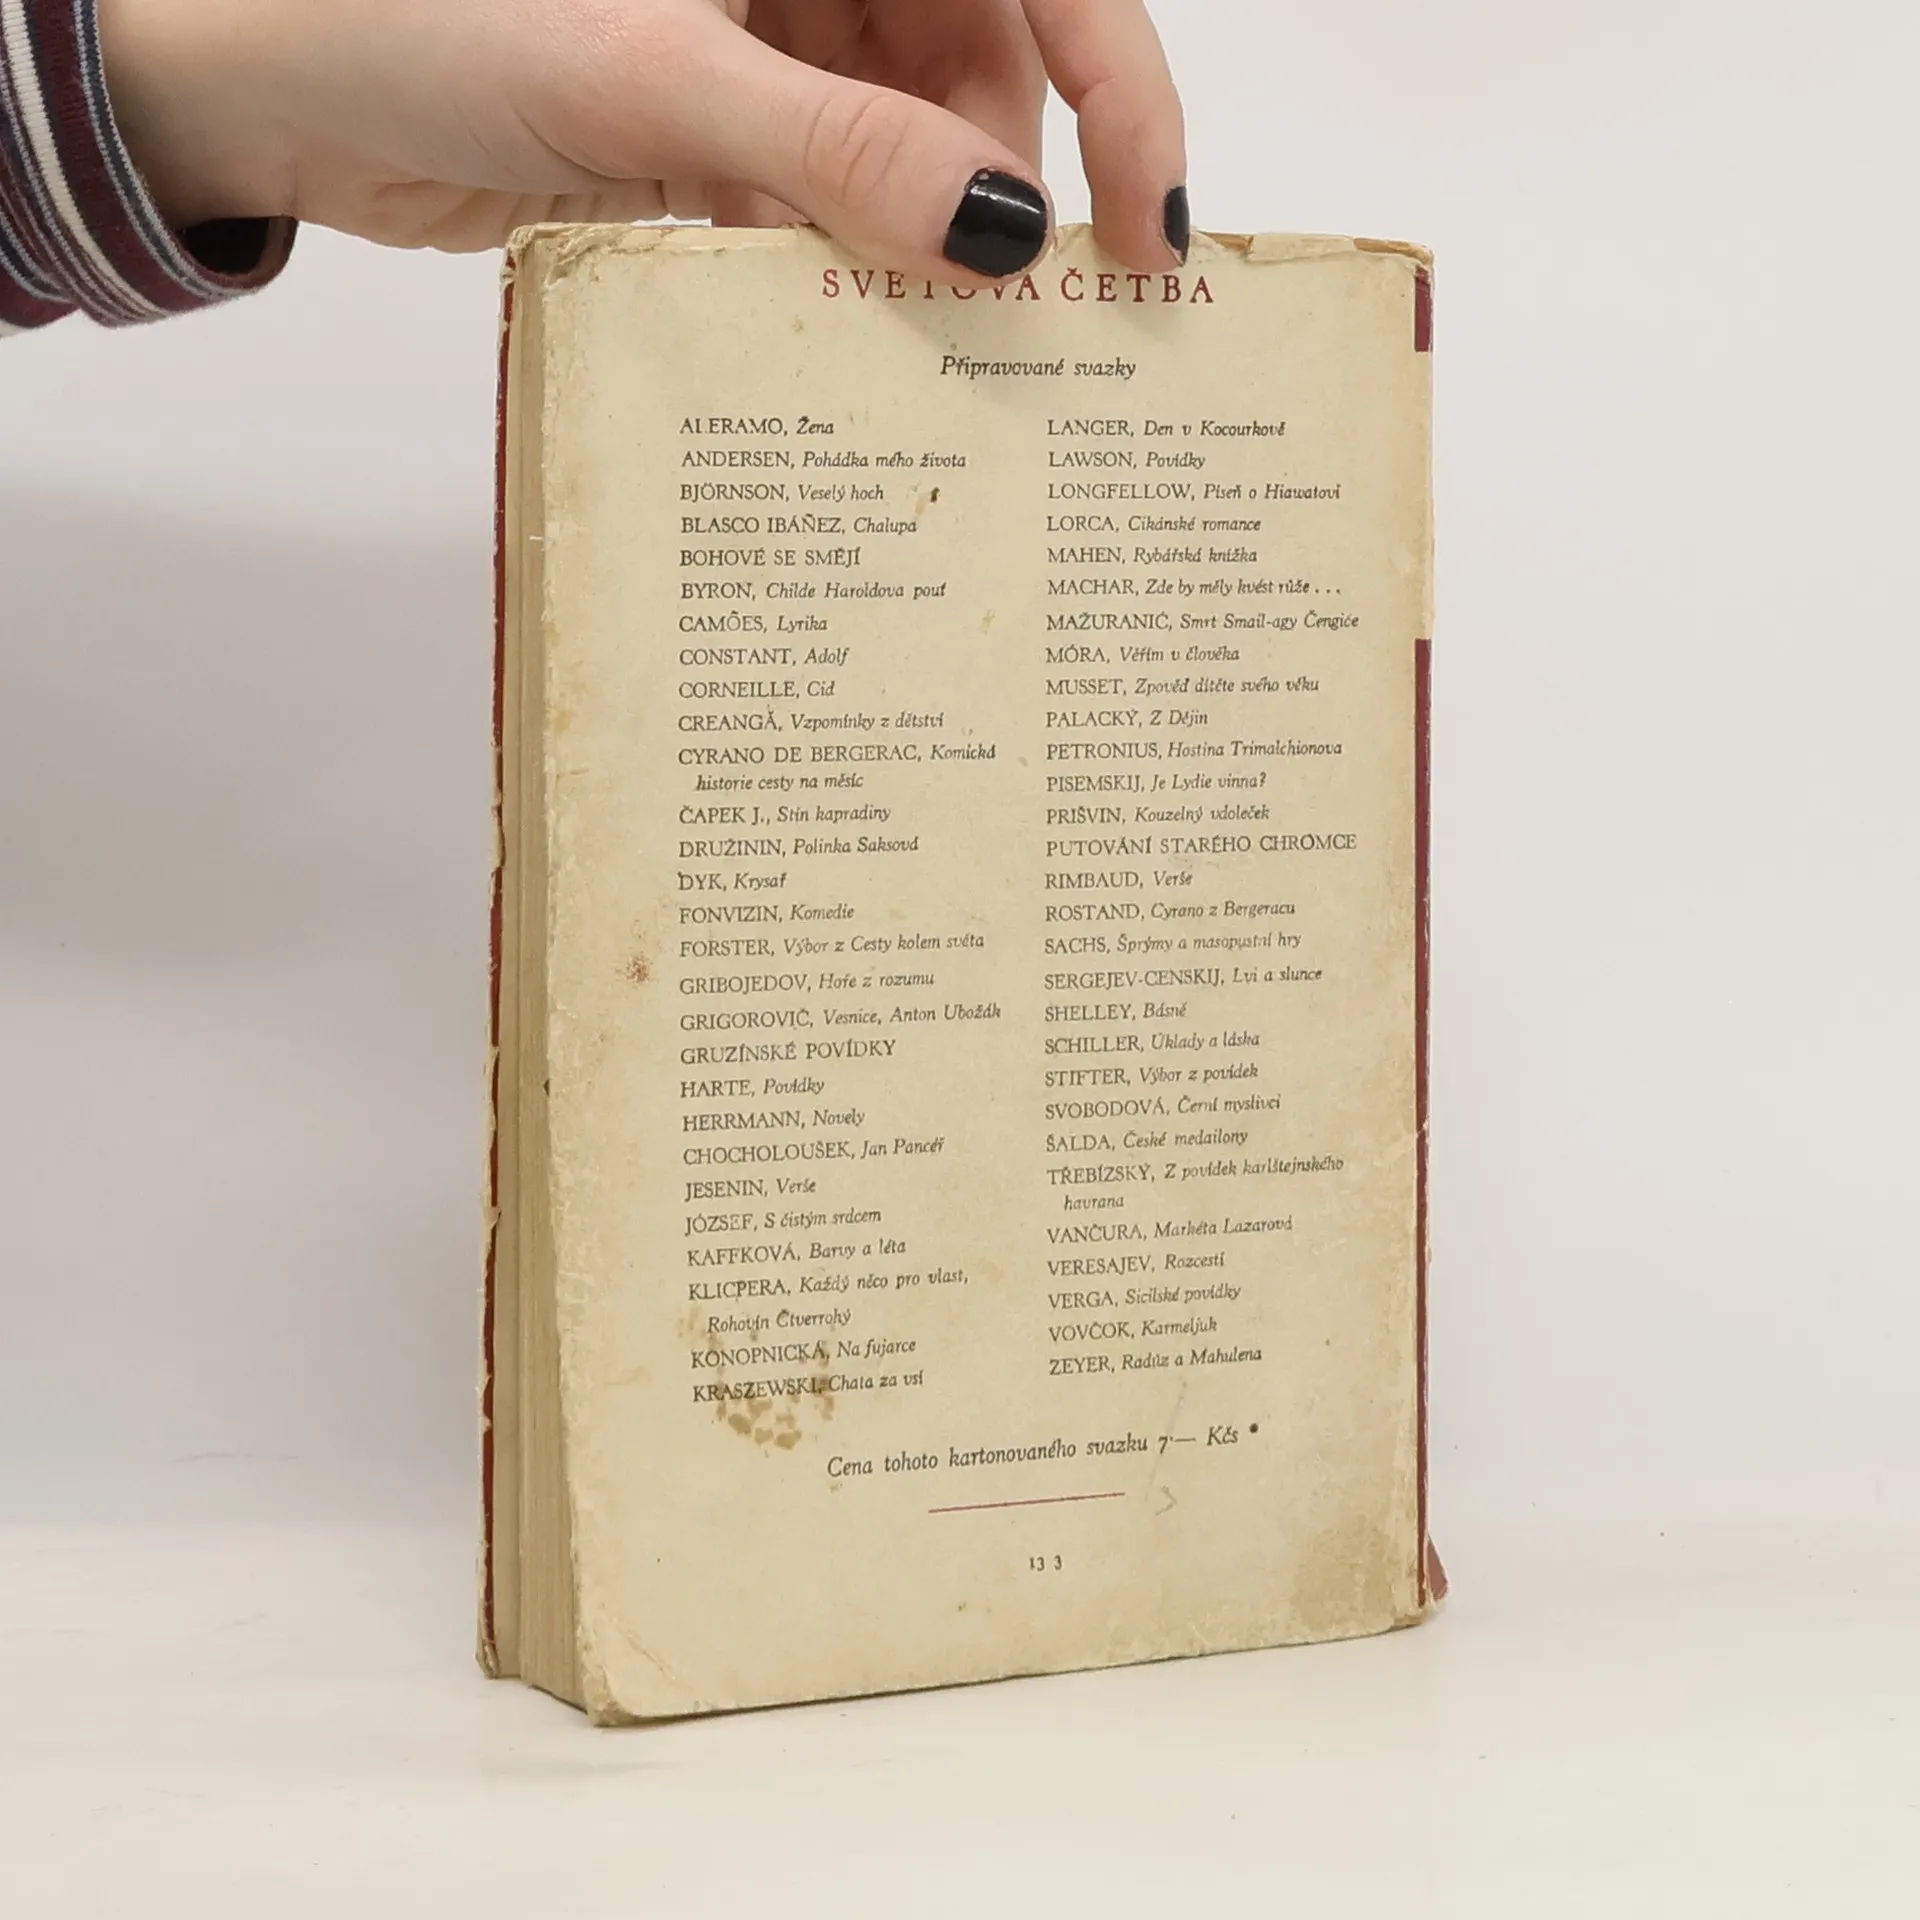 SVĚTOVÁ ČETBA
Připravované svazky
ALERAMO, Žena
ANDERSEN, Pohádka mého života
BJÖRNSON, Veselý hoch
BLASCO IBÁÑEZ, Chalupa
BOHOVÉ SE SMĚJÍ
BYRON, Childe Haroldova pouť
CAMÕES, Lyrika
CONSTANT, Adolf
CORNEILLE, Cid
CREANGĂ, Vzpomínky z dětství
CYRANO DE BERGERAC, Komická
historie cesty na měsíc
ČAPEK J., Stín kapradiny
DRUŽININ, Polinka Saksová
DYK, Krysař
FONVIZIN, Komedie
FORSTER, Výbor z Cesty kolem světa
GRIBOJEDOV, Hoře z rozumu
GRIGOROVIČ, Vesnice, Anton Ubožák
GRUZÍNSKÉ POVÍDKY
HARTE, Povídky
HERRMANN, Novely
CHOCHOLOUŠEK, Jan Pancéř
JESENIN, Verše
JÓZSEF, S čistým srdcem
KAFFKOVÁ, Barvy a léta
KLICPERA, Každý něco pro vlast,
Rohovín Čtverrohý
KONOPNICKÁ, Na fujarce
KRASZEWSKI, Chata za vsí
LANGER, Den v Kocourkově
LAWSON, Povídky
LONGFELLOW, Píseň o Hiawatovi
LORCA, Cikánské romance
MAHEN, Rybářská knížka
MACHAR, Zde by měly kvést růže . . .
MAŽURANIĆ, Smrt Smail-agy Čengiće
MÓRA, Věřím v člověka
MUSSET, Zpověď dítěte svého věku
PALACKÝ, Z Dějin
PETRONIUS, Hostina Trimalchionova
PISEMSKIJ, Je Lydie vinna?
PRIŠVIN, Kouzelný vdoleček
PUTOVÁNÍ STARÉHO CHROMCE
RIMBAUD, Verše
ROSTAND, Cyrano z Bergeracu
SACHS, Šprýmy a masopustní hry
SERGEJEV-CENSKIJ, Lvi a slunce
SHELLEY, Básně
SCHILLER, Úklady a láska
STIFTER, Výbor z povídek
SVOBODOVÁ, Černí myslivci
ŠALDA, České medailony
TŘEBÍZSKÝ, Z povídek karlštejnského
havrana
VANČURA, Markéta Lazarová
VERESAJEV, Rozcestí
VERGA, Sicilské povídky
VOVČOK, Karmeljuk
ZEYER, Radúz a Mahulena
Cena tohoto kartonovaného svazku 7·— Kčs
13 3